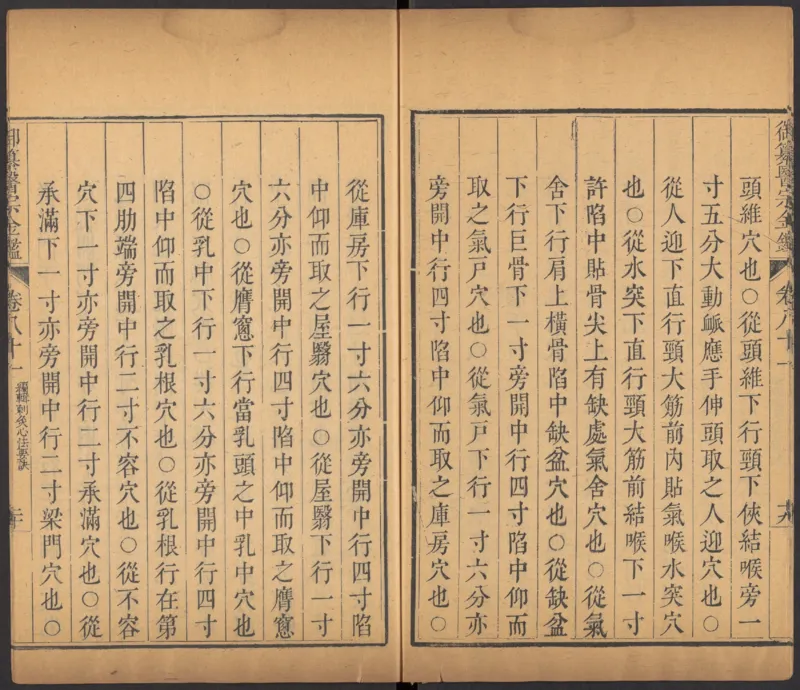 御纂醫宗金鑑
卷八十一
頭維穴也○從頭維下行頸下俠結喉旁一
寸五分大動脈應手伸頭取之人迎穴也○
從人迎下直行頸大筋前內貼氣喉水突穴
也○從水突下直行頸大筋前結喉下一寸
許陷中貼骨尖上有缺處氣舍穴也○從氣
舍下行肩上橫骨陷中缺盆穴也○從缺盆
下行巨骨下一寸旁開中行四寸陷中仰而
取之氣戸穴也○從氣戸下行一寸六分亦
旁開中行四寸陷中仰而取之庫房穴也○
從庫房下行一寸六分亦旁開中行四寸陷
中仰而取之屋翳穴也○從屋翳下行一寸
六分亦旁開中行四寸陷中仰而取之膺窻
穴也○從膺窻下行當乳頭之中乳中穴也
○從乳中下行一寸六分亦旁開中行四寸
陷中仰而取之乳根穴也○從乳根行在第
四肋端旁開中行二寸不容穴也○從不容
穴下一寸亦旁開中行二寸承滿穴也○從
承滿下一寸亦旁開中行二寸梁門穴也○
御纂醫宗金鑑
卷八十一
編輯刺灸心法要訣